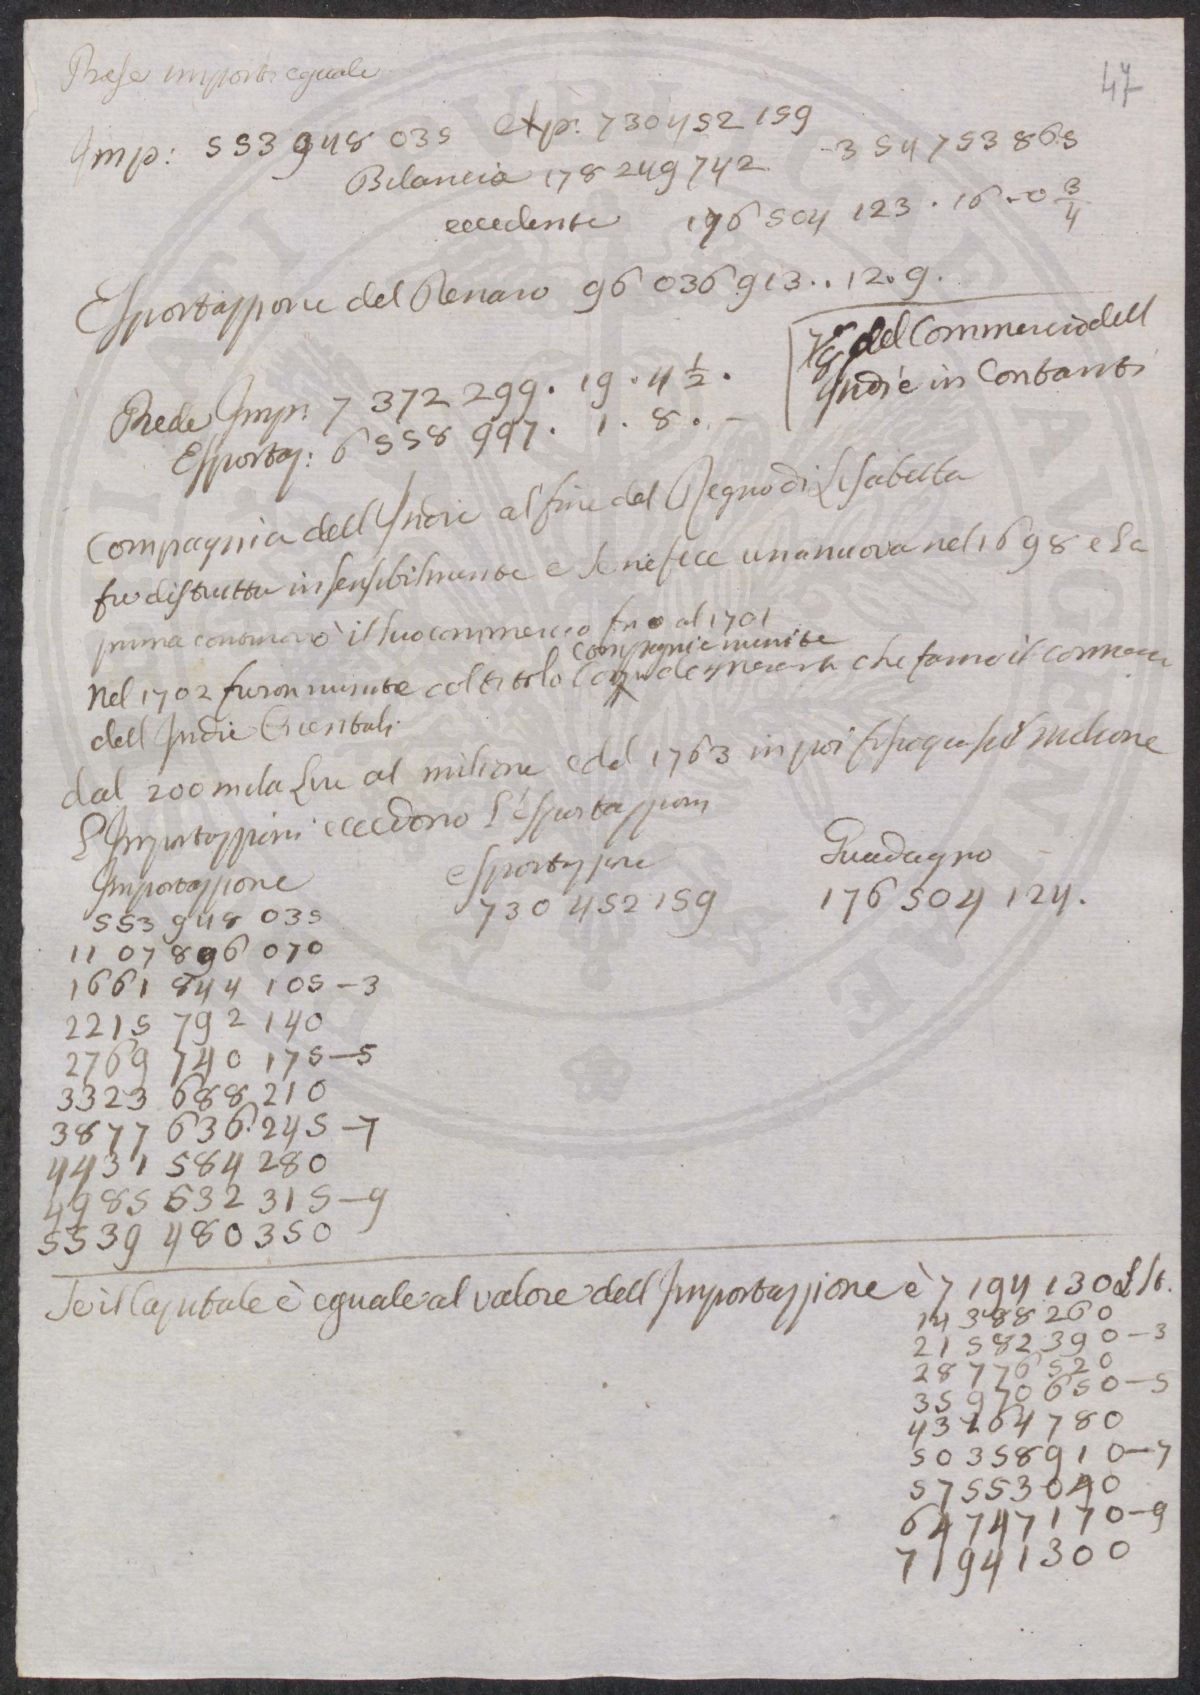 47
Prese import: eguale
Imp: 553 948 035 Exp: 730 452 159
Bilancia 178 249 742 - 354 753 865
eccedente 176 504 123 . 16 . - 0 3/4
Esportazzione del Denaro 96 036 913 . . 12 . 9 .
del Commercio dell
Indie in Contanti
Prede Imp: 7 372 299 . 19 . 4 1/2 .
Esportaz: 6 558 997 . 1 . 8 . -
Compagnia dell Indie al fine del Regno di Lisabetta
fu distrutta insensibilmente e se ne fece una nuova nel 1698 e la
prima continovò il suo commercio fino al 1701
compagnie unite
Nel 1702 furon unite col titolo che fanno il commer
dell Indie Orientali
dal 200 mila Lire al milione e dal 1763 in poi milione
L'Importazzioni eccedono l'Esportazzioni
Importazzione Esportazzione Guadagno
553 948 035 730 452 159 176 504 124 .
11 07 896 070
1661 844 105 - 3
2215 792 140
2769 740 175 - 5
3323 688 210
3877 636 245 - 7
4431 584 280
4985 532 315 - 9
5539 480 350
Se il Capitale è eguale al valore dell Importazzione è 7 194 130 L St.
14 388 260
21 582 390 - 3
28 776 520
35 970 650 - 5
43 164 780
50 358 910 - 7
57 553 040
64 747 170 - 9
71 941 300